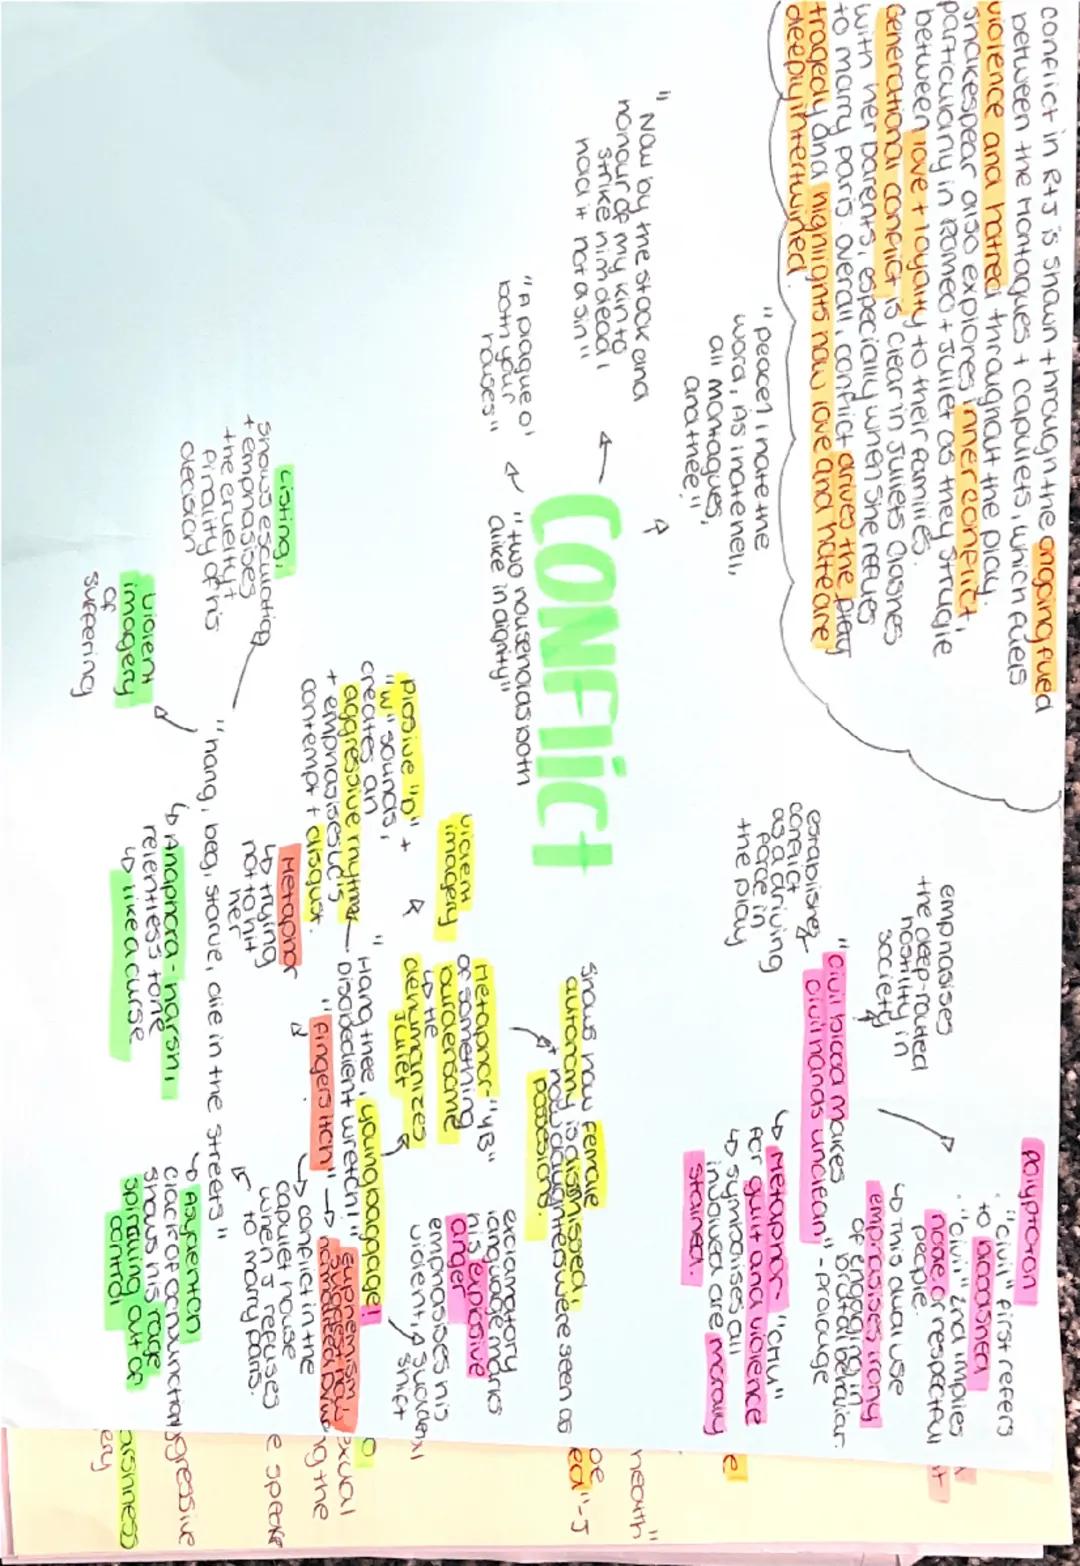 conflict in R+J is shown through the ongoing fued
between the Montagues + capulets, which fuels
violence and hatred throughout the play.
shakespear also explores inner conflict,
particularly in Romeo + Juliet as they struggle
between love + loyalty to their families.
Generational conflict is clear in Juliets clashes
with her parents, especially when she refues
to marry paris. overall, conflict drives the play
tragedy and highlights how love and hate are
deeply intertwined.
"peace! I hate the
word, As i hate hell,
all montagues,
and thee!"
"Now by the stock and
honour of my kin to
strike him dead I
hold it not a sin"
"A plague o'
both your
houses"
CONFlict
"two households both
alike in dignity"
polyptoton
"civil" first refers
to bloodshed
"civil" 2nd implies
noble or respectful
people.
↳ This dual use
emphasises irony
of engaging in
brutal behaviour.
emphasises
the deep-routed
hostility in
society
establishes
conflict
as a driving
force in
the play
"civil blood makes
civil hands unclean" - prolouge
↳ Metaphor - "CHU"
for guilt and violence
↳ symbolises all
involved are morally
stained.
shows how female
autonomy is dismissed,
+ how daughters were seen as
possesions.
violent
imagery
Metaphor "YB"
of something
burdensome
↳ the
dehumanizes
Juliet
exclamatory
language marks
his explosive
anger
emphasises his
violent, suddenl
shift
plosive "D" +
"W" sounds,
creates an
aggressive rhythm
+ emphasises LC's
contempt + disgust.
"Hang thee, young baggage!
Disobedient wretch!"
Metaphor
↳ trying
not to hit
her
"fingers itch"
conflict in the
capulet house
when J refuses
to marry paris.
Listing,
shows esculating
+ emphasises
the cruelty +
finality of his
decision
violent
imagery
of
suffering
"hang, beg, starve, die in the streets"
↳ Anaphora - harsh,
relentless tone
↳ like a curse
↳ Asydenton
(lack of conjunction)
shows his rage
spiralling out of
control